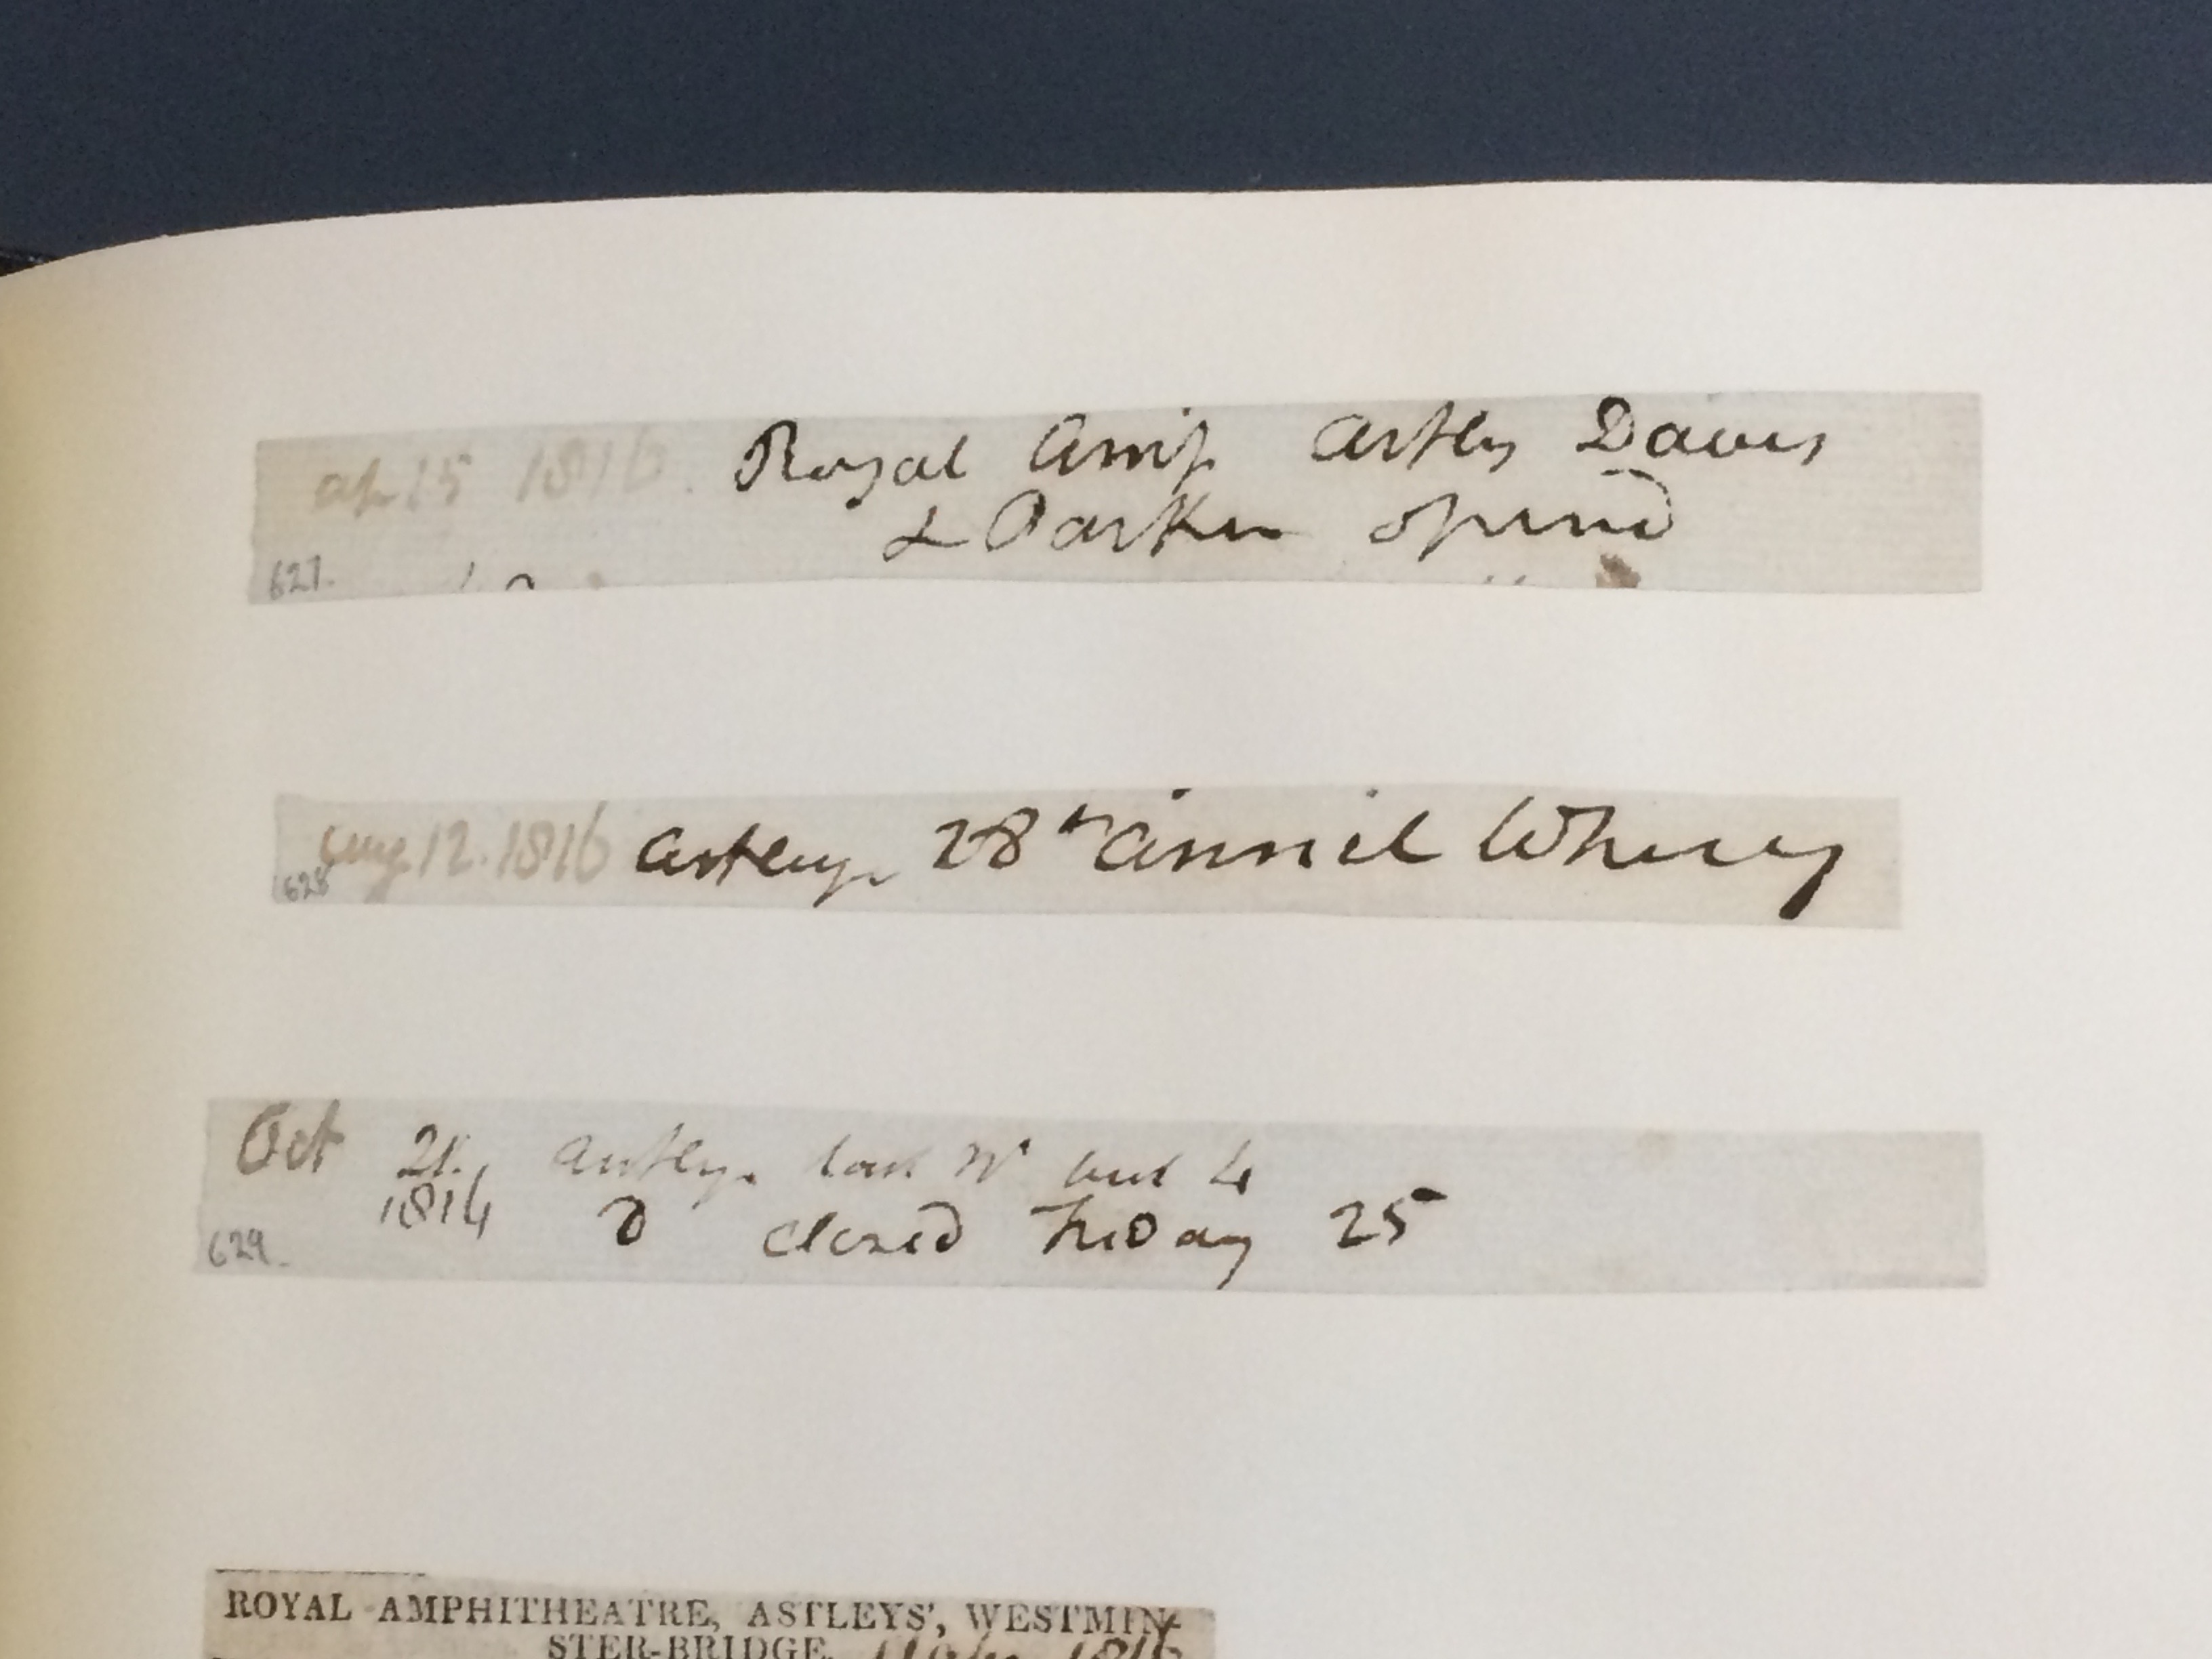 ap 15 1816. Royal Amp Astleys Davis
& Parker opend
627.
Aug 12. 1816 Astleys 28th annil Wherry
628
Oct 21. Astleys last Nt but 4
1816 D closed Friday 25
629.
ROYAL AMPHITHEATRE, ASTLEYS', WESTMIN-
STER-BRIDGE. 1816